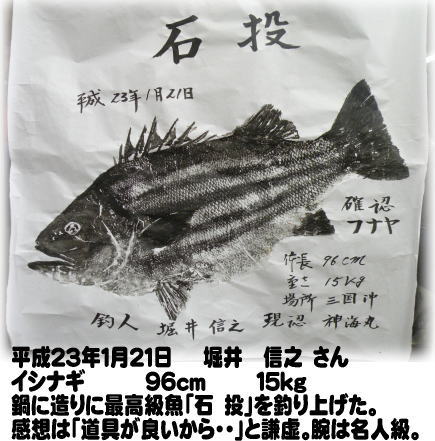 石投
平成23年1月21日
確認
フナヤ
体長 96cm
重さ 15kg
場所 三国沖
釣人 堀井信之 現認 神海丸
平成23年1月21日　堀井　信之 さん
イシナギ　96cm　15kg
鍋に造りに最高級魚「石 投」を釣り上げた。
感想は「道具が良いから・・」と謙虚。腕は名人級。